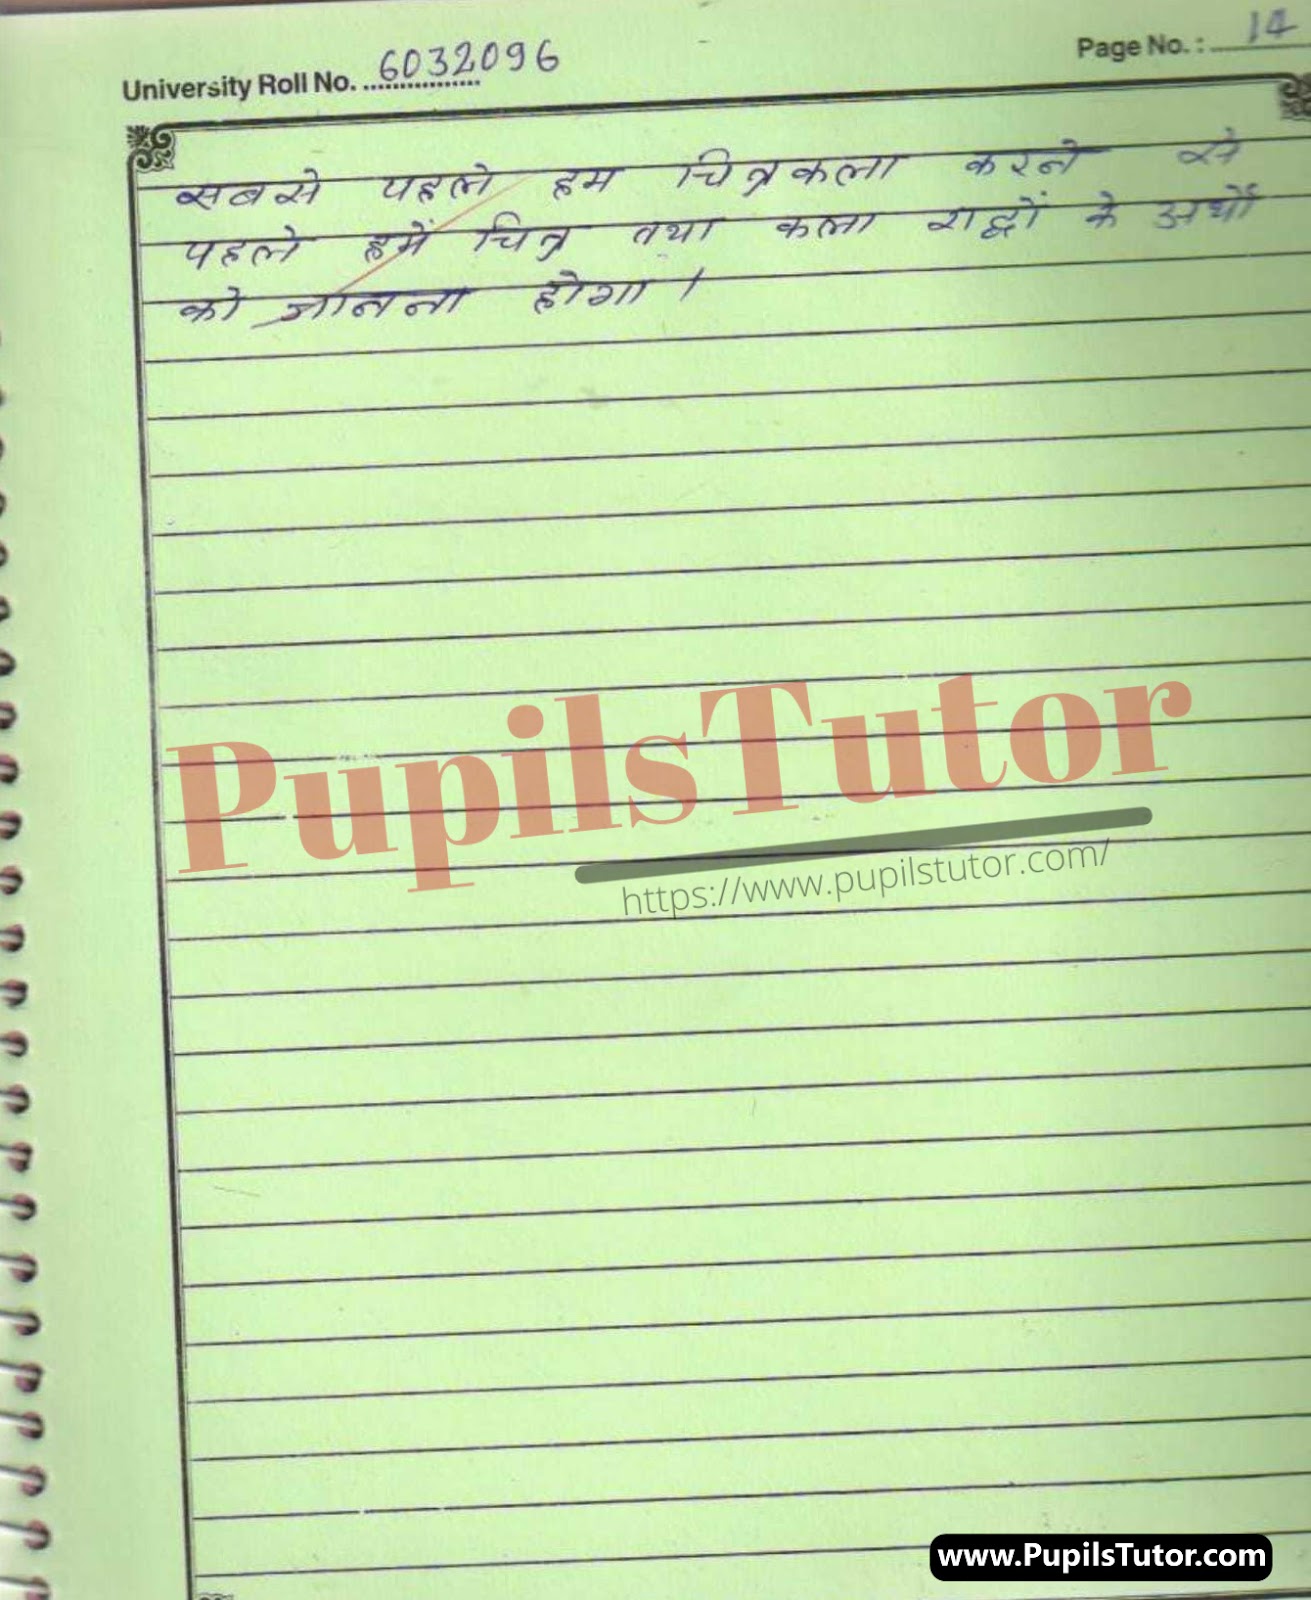 University Roll No. 6032096
Page No. : 14
सबसे पहले हम चित्रकला करने से
पहले हमें चित्र तथा कला शब्दों के अर्थों
को जानना होगा।
PupilsTutor
https://www.pupilstutor.com/
www.PupilsTutor.com